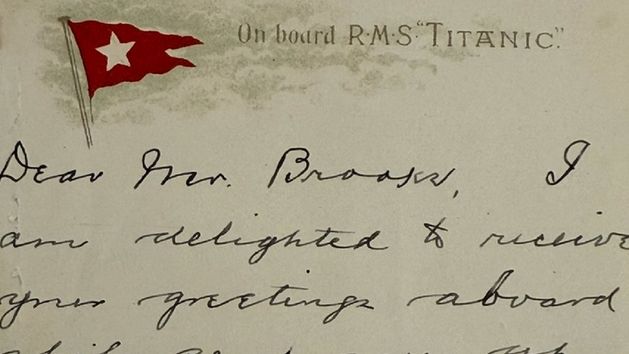 On board R·M·S· "TITANIC".
Dear Mr. Brooks, I
am delighted to receive
your greetings aboard